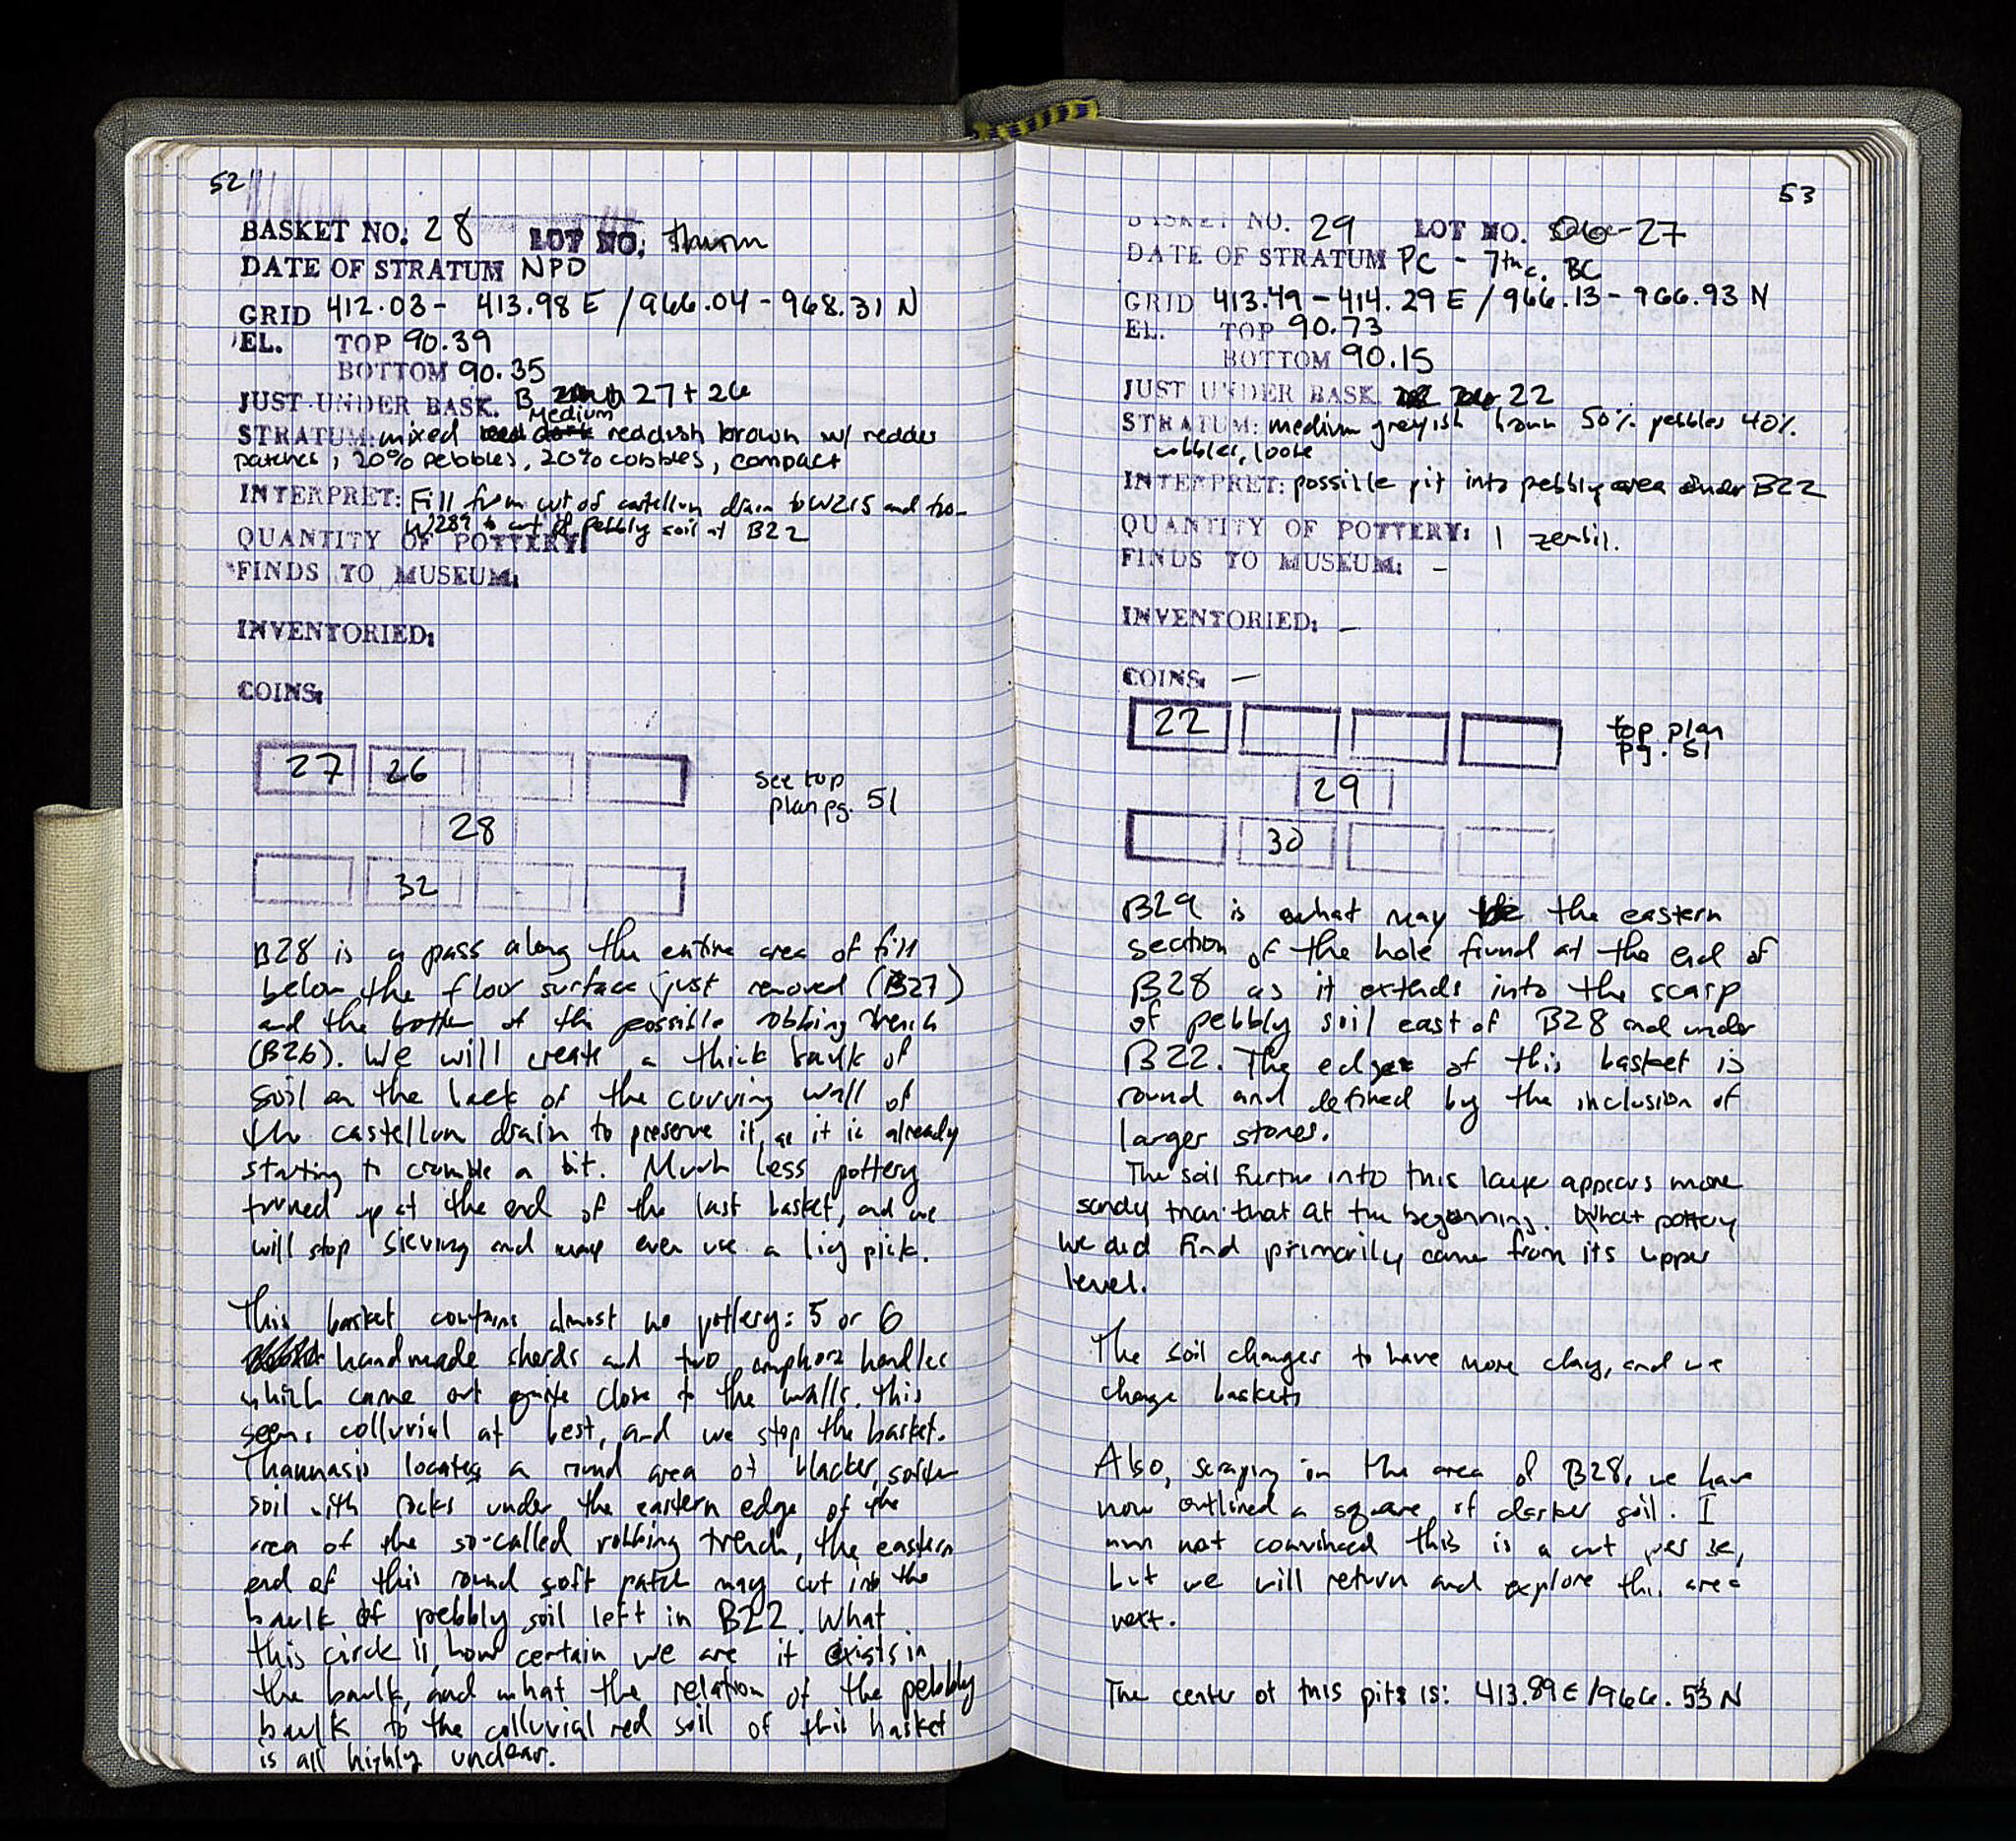 52
BASKET NO. 28 LOT NO. thrown
DATE OF STRATUM NPD
GRID 412.03 - 413.98 E / 966.04 - 968.31 N
EL. TOP 90.39
BOTTOM 90.35
JUST UNDER BASK. B 27 + 26
Medium
STRATUM: mixed reddish brown w/ redder
patches, 20% pebbles, 20% cobbles, compact
INTERPRET: Fill from cut of castellum drain to W215 and from
W2289 to cut of pebbly soil at B22
QUANTITY OF POTTERY:
FINDS TO MUSEUM:
INVENTORIED:
COINS:
27 26
see top
plan pg. 51
28
32
B28 is a pass along the entire area of fill
below the floor surface just removed (B27)
and the bottom of the possible robbing trench
(B26). We will create a thick baulk of
soil on the back of the curving wall of
the castellum drain to preserve it, as it is already
starting to crumble a bit. Much less pottery
turned up at the end of the last basket, and we
will stop sieving and may even use a big pick.
This basket contains almost no pottery: 5 or 6
handmade sherds and two amphora handles
which came out quite close to the walls. This
seems colluvial at best, and we stop the basket.
Thannasis locates a round area of blacker, softer
soil with rocks under the eastern edge of the
area of the so-called robbing trench, the eastern
end of this round soft patch may cut into the
baulk of pebbly soil left in B22. What
this circle is, how certain we are it exists in
the baulk, and what the relation of the pebbly
baulk to the colluvial red soil of this basket
is all highly unclear.
53
BASKET NO. 29 LOT NO. 06-27
DATE OF STRATUM PC - 7th c. BC
GRID 413.49 - 414.29 E / 966.13 - 966.93 N
EL. TOP 90.73
BOTTOM 90.15
JUST UNDER BASK. 22
STRATUM: medium greyish brown 50% pebbles 40%
cobbles, loose
INTERPRET: possible pit into pebbly area under B22
QUANTITY OF POTTERY: 1 zembil.
FINDS TO MUSEUM: -
INVENTORIED: -
COINS: -
22
top plan
pg. 51
29
30
B29 is what may be the eastern
section of the hole found at the end of
B28 as it extends into the scarp
of pebbly soil east of B28 and under
B22. The edge of this basket is
round and defined by the inclusion of
larger stones.
The soil further into this layer appears more
sandy than that at the beginning. What pottery
we did find primarily came from its upper
level.
The soil changes to have more clay, and we
change baskets
Also, scraping in the area of B28, we have
now outlined a square of darker soil. I
am not convinced this is a cut per se,
but we will return and explore this area
next.
The center of this pit is: 413.89 E / 966.53 N